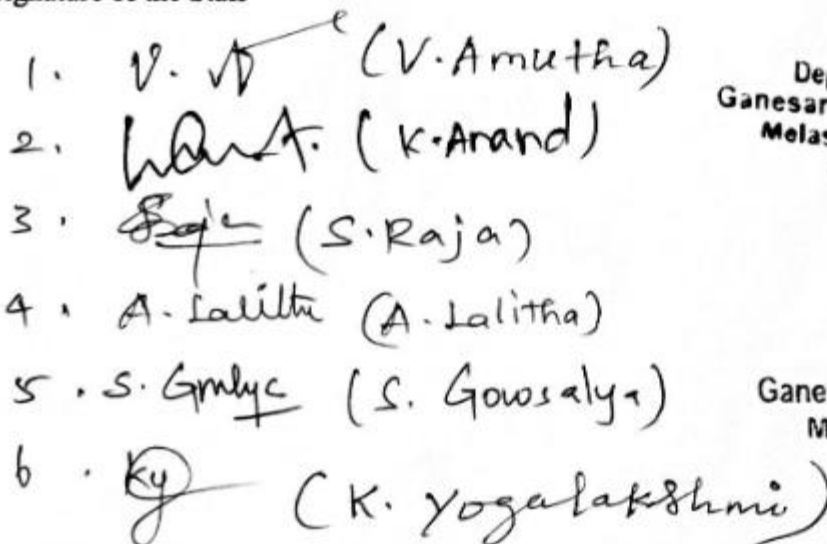 1. V. A (V. Amutha)
2. (K. Anand)
3. (S. Raja)
4. A. Lalitha (A. Lalitha)
5. S. (S. Gowsalya)
6. Ky (K. Yogalakshmi)
Dep
Ganesar
Melas
Gane
M